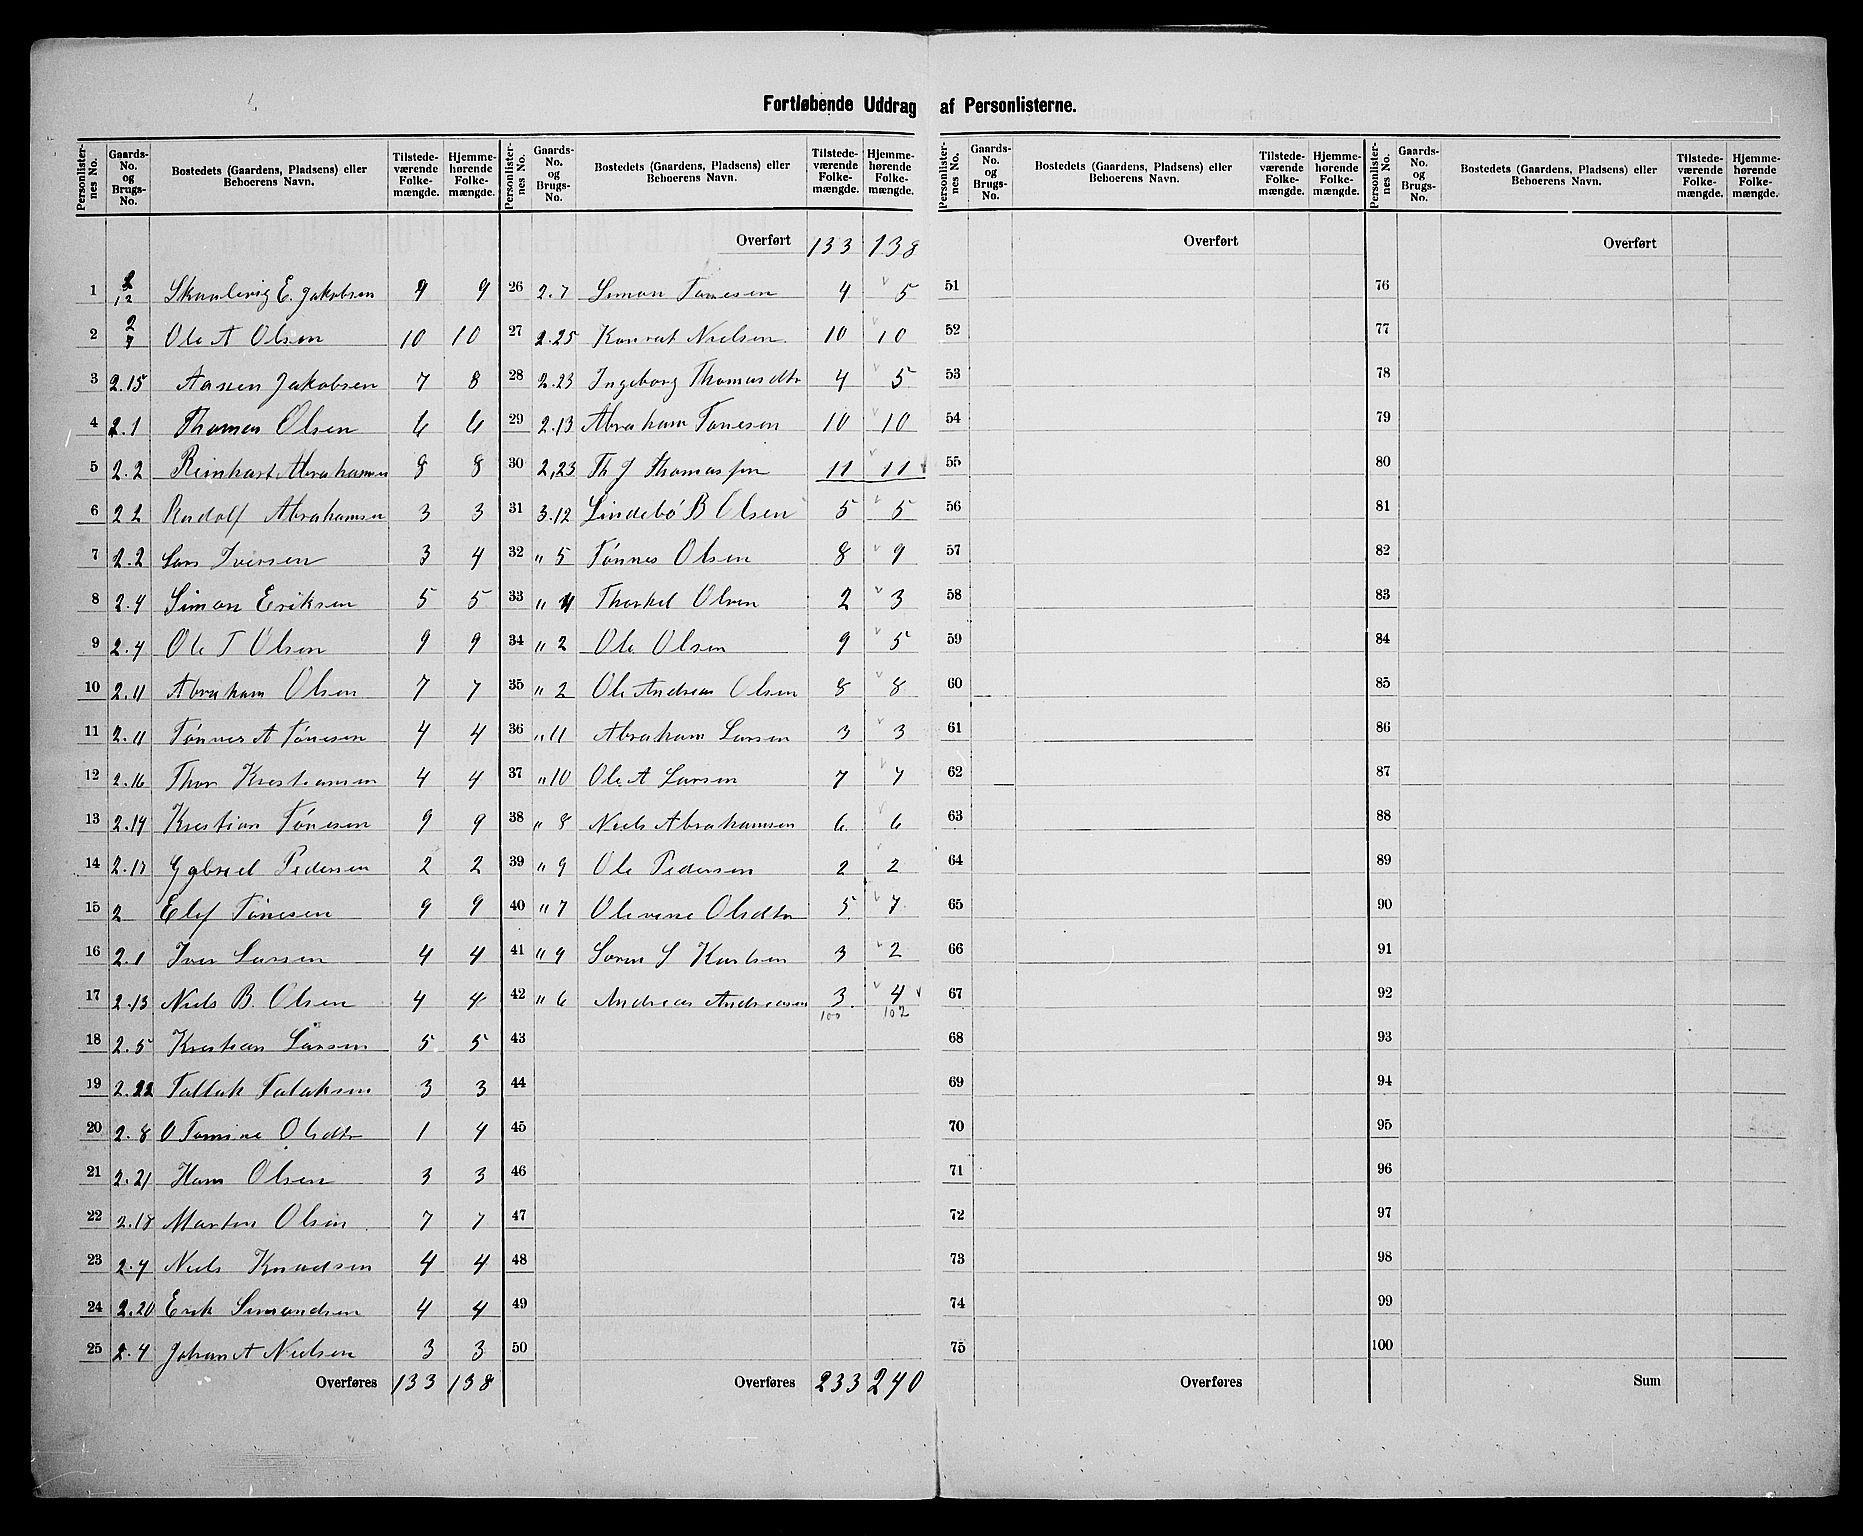 Fortløbende Uddrag af Personlisterne.
Personlister-nes No. Gaards-No. og Brugs-No. Bostedets (Gaardens, Pladsens) eller Beboerens Navn. Tilstede-værende Folke-mængde. Hjemme-hørende Folke-mængde.
Personlister-nes No. Gaards-No. og Brugs-No. Bostedets (Gaardens, Pladsens) eller Beboerens Navn. Tilstede-værende Folke-mængde. Hjemme-hørende Folke-mængde.
Personlister-nes No. Gaards-No. og Brugs-No. Bostedets (Gaardens, Pladsens) eller Beboerens Navn. Tilstede-værende Folke-mængde. Hjemme-hørende Folke-mængde.
Personlister-nes No. Gaards-No. og Brugs-No. Bostedets (Gaardens, Pladsens) eller Beboerens Navn. Tilstede-værende Folke-mængde. Hjemme-hørende Folke-mængde.
1 2/12 Skaalevig E. Jakobsen 9 9
2 2/7 Ole A Olsen 10 10
3 2.15 Aanen Jakobsen 7 8
4 2.1 Thomas Olsen 6 6
5 2.2 Reinhart Abrahamsen 8 8
6 2 2 Rudolf Abrahamsen 3 3
7 2.2 Lars Iversen 3 4
8 2.4 Simon Eriksen 5 5
9 2.4 Ole T Olsen 9 9
10 2.11 Abraham Olsen 7 7
11 2.11 Tønnes A Tønesen 4 4
12 2.16 Thor Krestiansen 4 4
13 2.14 Krestian Tønesen 9 9
14 2.17 Gabriel Pedersen 2 2
15 2 Elef Tønesen 9 9
16 2.1 Iver Larsen 4 4
17 2.13 Niels B. Olsen 4 4
18 2.5 Krestian Larsen 5 5
19 2.22 Tallak Talaksen 3 3
20 2.8 O Tomine Olsdtr 1 4
21 2.21 Hans Olsen 3 3
22 2.18 Marten Olsen 7 7
23 2.4 Niels Knudsen 4 4
24 2.20 Erik Simondsen 4 4
25 2.4 Johan A Nielsen 3 3
Overføres 133 138
Overført 133 138
26 2.7 Simon Tønesen 4 5
27 2.25 Konrat Nielsen 10 10
28 2.23 Ingeborg Thomasdtr 4 5
29 2.13 Abraham Tønesen 10 10
30 2,23 Th J Thomassen 11 11
31 3.12 Lindebø B Olsen 5 5
32 " 5 Tønnes Olsen 8 9
33 " 4 Thorkel Olsen 2 3
34 " 2 Ole Olsen 9 5
35 " 2 Ole Andreas Olsen 8 8
36 " 11 Abraham Larsen 3 3
37 " 10 Ole A Larsen 7 7
38 " 8 Niels Abrahamsen 6 6
39 " 9 Ole Pedersen 2 2
40 " 7 Olevine Olsdtr 5 7
41 " 9 Søren S Karlsen 3 2
42 " 6 Andreas Andreasen 3 4
100 102
43
44
45
46
47
48
49
50
Overføres 233 240
Overført
51
52
53
54
55
56
57
58
59
60
61
62
63
64
65
66
67
68
69
70
71
72
73
74
75
Overføres
Overført
76
77
78
79
80
81
82
83
84
85
86
87
88
89
90
91
92
93
94
95
96
97
98
99
100
Sum